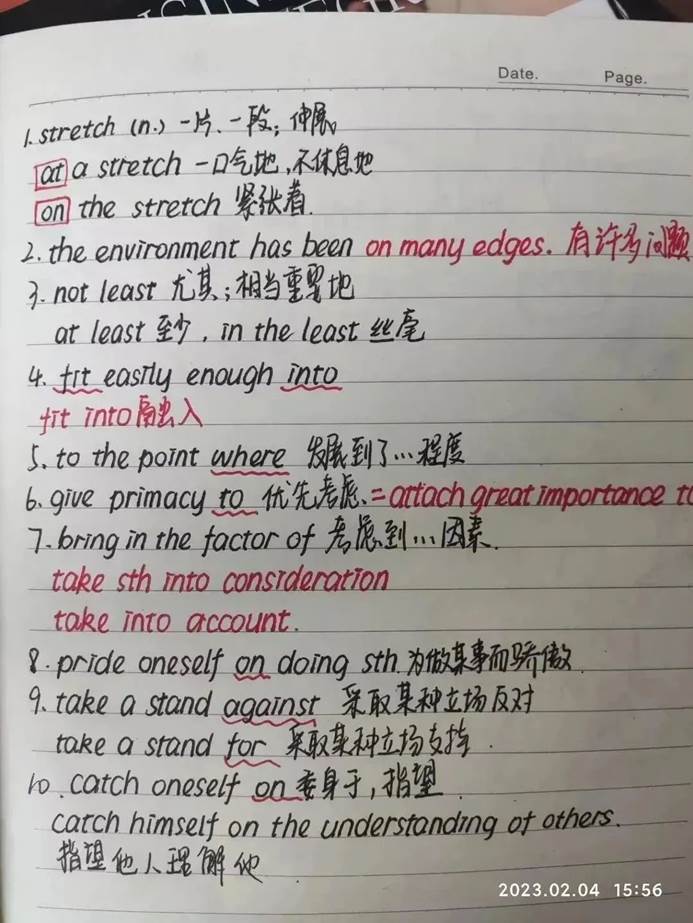 Date. Page.
1. stretch (n.) 一片、一段; 伸展
at a stretch 一口气地,不休息地
on the stretch 紧张着.
2. the environment has been on many edges. 有许多问题
3. not least 尤其; 相当重要地
at least 至少, in the least 丝毫
4. fit easily enough into
fit into 融入
5. to the point where 发展到了…程度
6. give primacy to 优先考虑、= attach great importance to
7. bring in the factor of 考虑到…因素.
take sth into consideration
take into account.
8. pride oneself on doing sth 为做某事而骄傲
9. take a stand against 采取某种立场反对
take a stand for 采取某种立场支持.
10. catch oneself on 委身于,指望
catch himself on the understanding of others.
指望他人理解他
2023.02.04 15:56